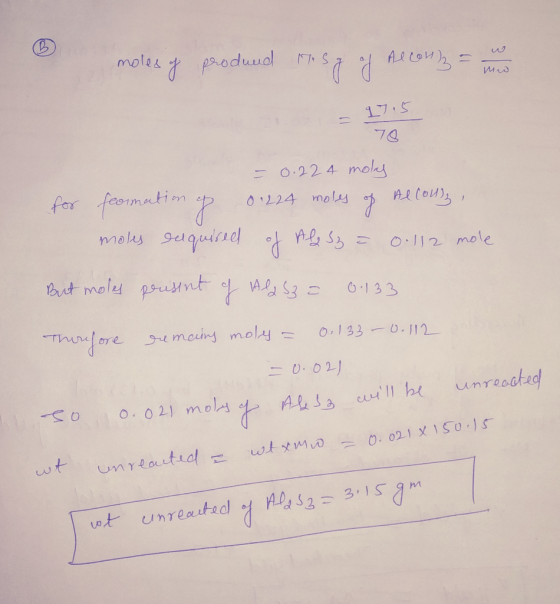 B
moles of produced 17.5 g of Al(OH)3 = w/mw
= 17.5/78
= 0.224 moles
for feormation of 0.224 moles of Al(OH)3,
moles required of Al2S3 = 0.112 mole
But moles present of Al2S3 = 0.133
Therefore remains moles = 0.133 - 0.112
= 0.021
so 0.021 moles of Al2S3 will be unreacted
wt unreacted = wt x Mw = 0.021 x 150.15
wt unreacted of Al2S3 = 3.15 gm